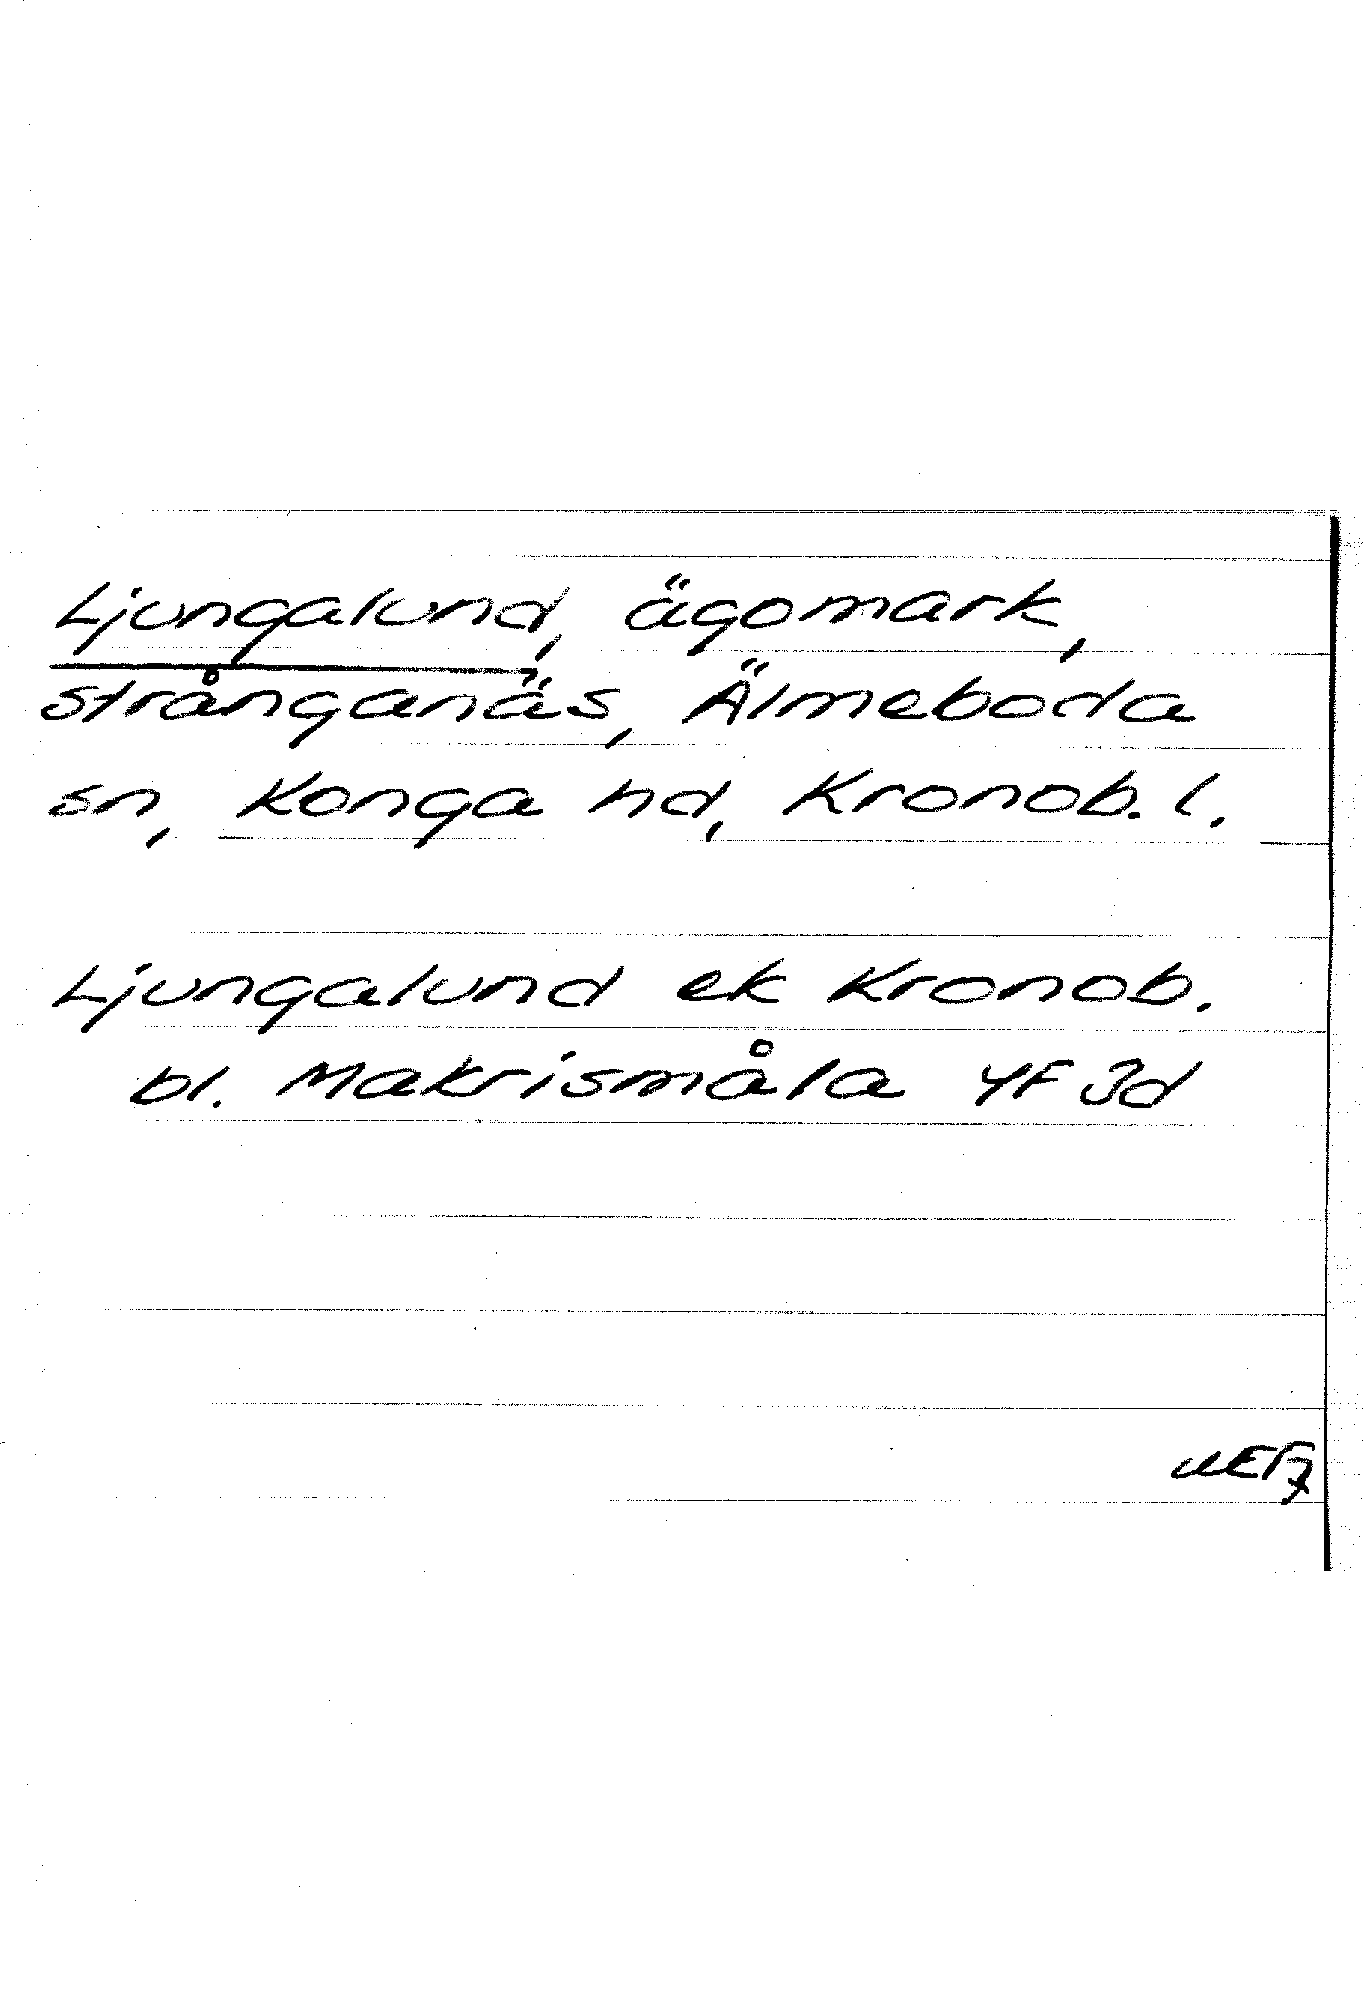 Ljungalund, ägomark,
Strånganäs, Älmeboda
sn, Konga hd, Kronob. l.
Ljungalund ek Kronob.
bl. Makrismåla 4F 3d